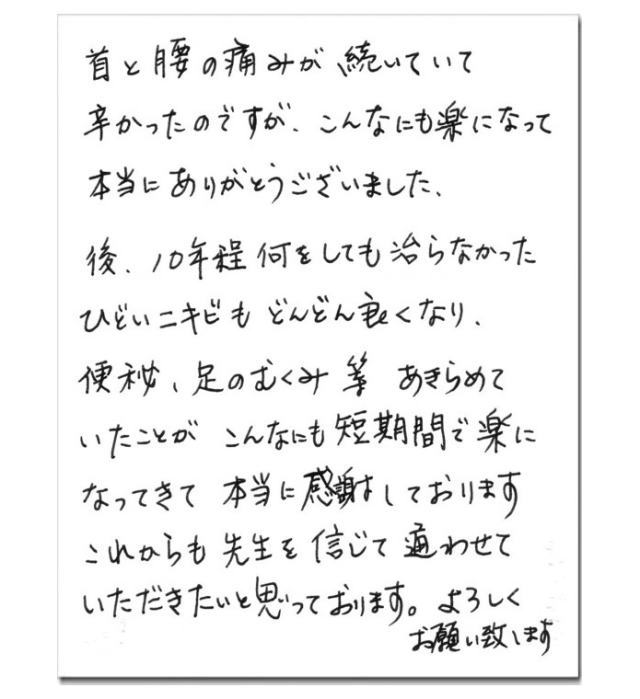 首と腰の痛みが、続いていて
辛かったのですが、こんなにも楽になって
本当にありがとうございました、
後、10年程何をしても治らなかった
ひどいニキビもどんどん良くなり、
便秘、足のむくみ等 あきらめて
いたことが こんなにも短期間で楽に
なってきて 本当に感謝しております
これからも先生を信じて通わせて
いただきたいと思っております。よろしく
お願い致します